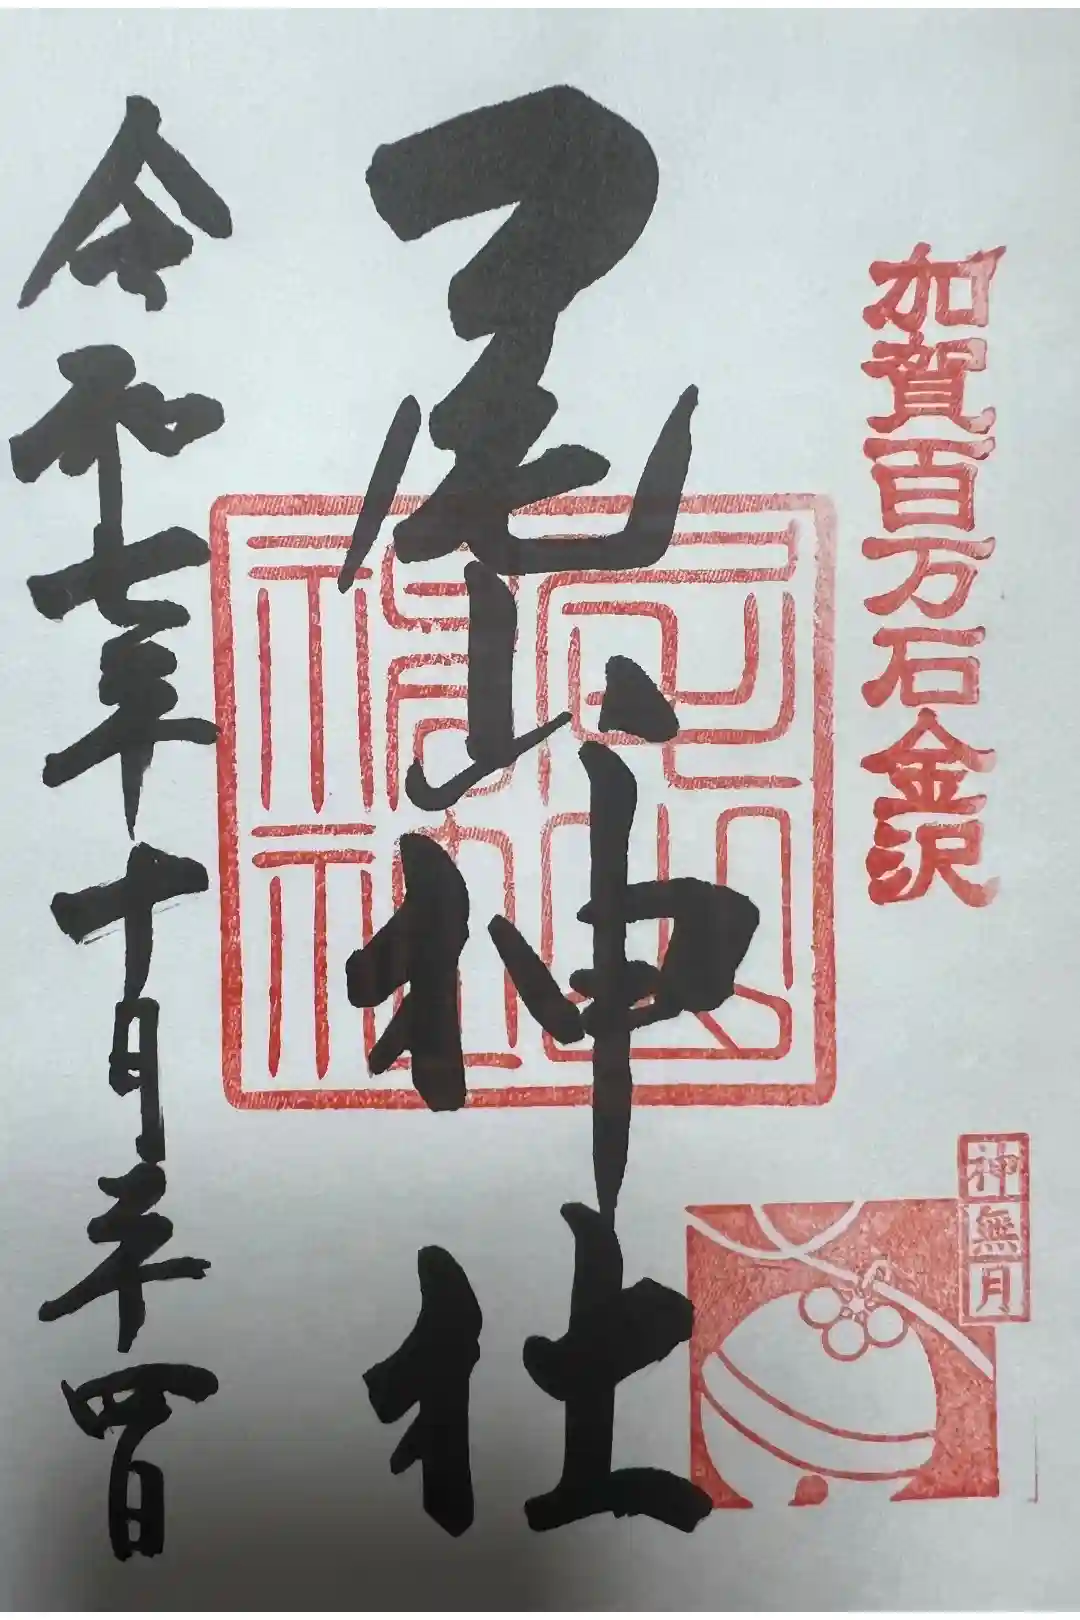 加賀百万石金沢
神無月
尾山神社
尾山
神社
令和七年十月二十四日